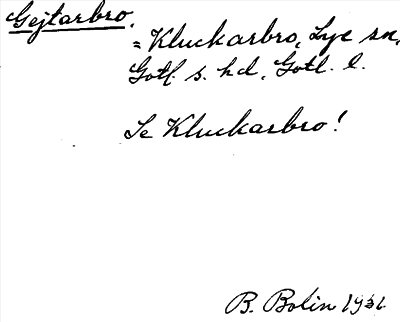 Gejtarbro.
= Kluckarbro, Lye sn,
Gotl. s. hd, Gotl. l.
Se Kluckarbro!
B. Bolin 1931